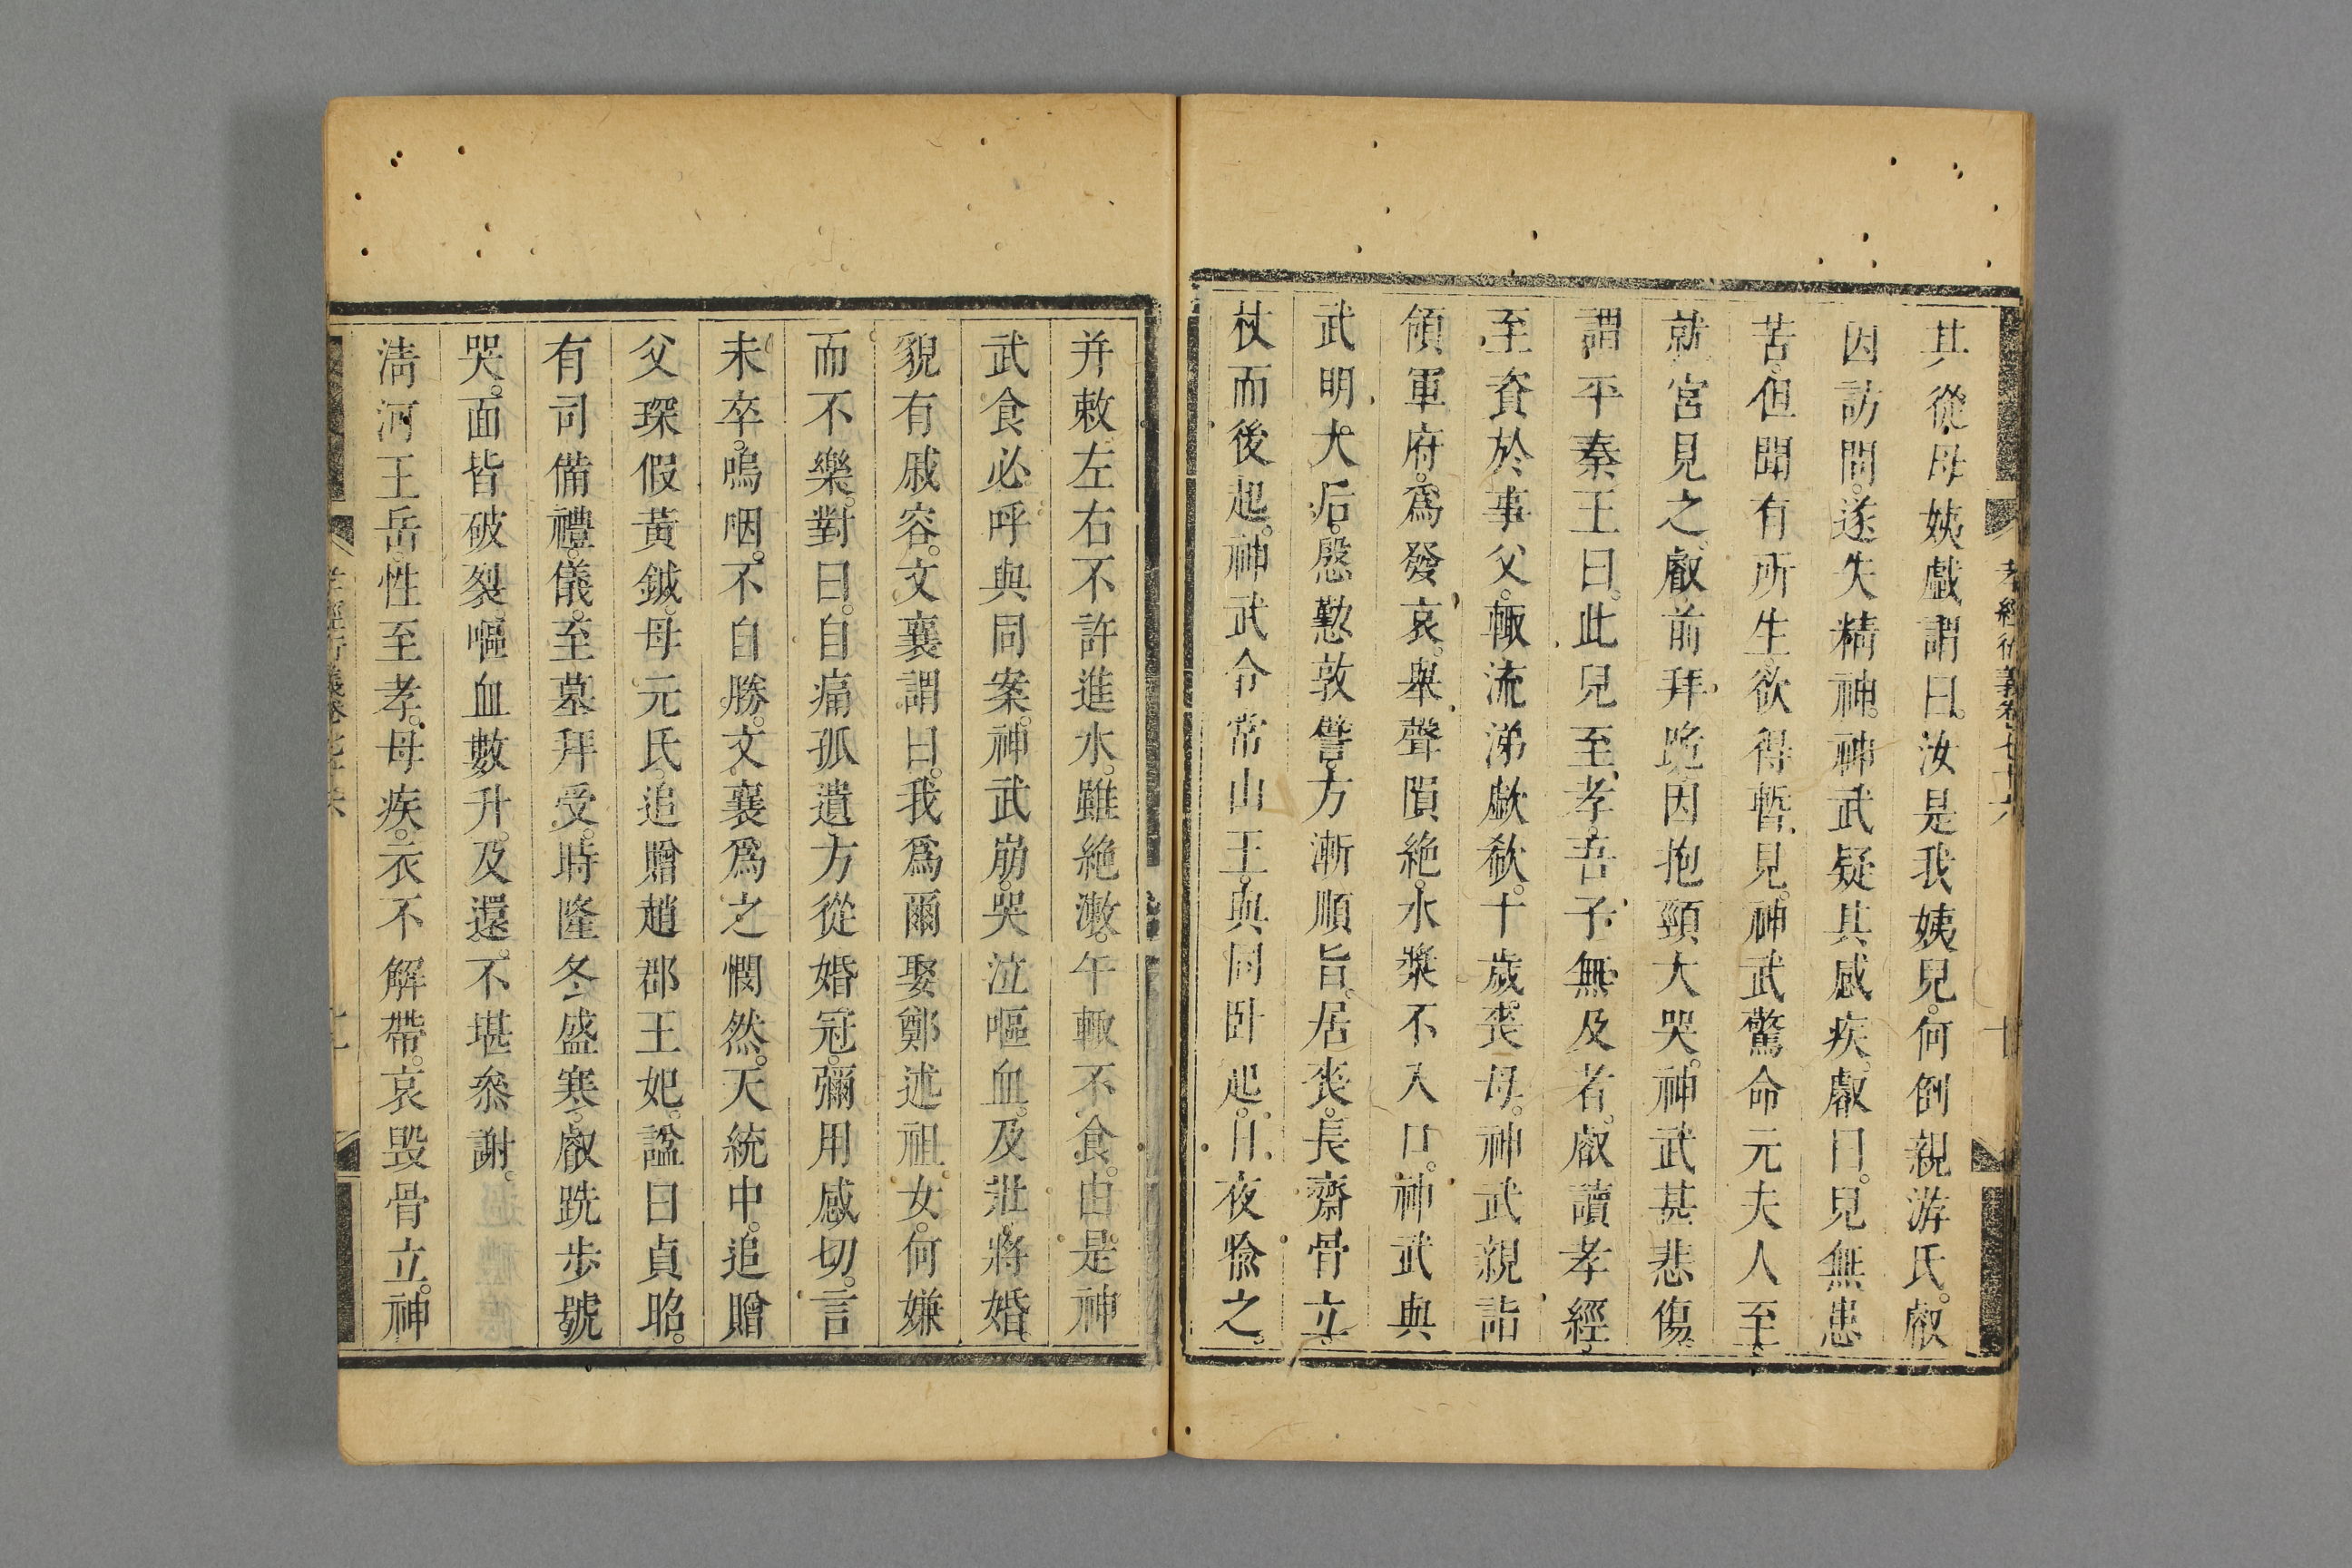 孝經衍義卷七十六
廿
其從母姨戲謂曰。汝是我姨兒。何倒親游氏。叡
因訪問。遂失精神。神武疑其感疾。叡曰。兒無患
苦。但聞有所生。欲得暫見。神武驚。命元夫人至
就宮見之。叡前拜跪。因抱頸大哭。神武甚悲傷。
謂平秦王曰。此兒至孝。吾子無及者。叡讀孝經。
至資於事父。輒流涕歔欷。十歲喪母。神武親詣
領軍府。爲發哀。舉聲隕絶。水漿不入口。神武與
武明太后。慇懃敦譬。方漸順旨。居喪。長齋骨立。
杖而後起。神武令常山王。與同臥起。日夜喻之。
并敕左右不許進水。雖絶漱。午輒不食。由是神
武食必呼與同案。神武崩。哭泣嘔血。及壯。將婚。
貌有戚容。文襄謂曰。我爲爾娶鄭述祖女。何嫌
而不樂。對曰。自痛孤遺。方從婚冠。彌用感切。言
未卒。嗚咽。不自勝。文襄爲之憫然。天統中。追贈
父琛假黃鉞。母元氏。追贈趙郡王妃。諡曰貞昭。
有司備禮儀。至墓拜受。時隆冬盛寒。叡跣步號
哭。面皆破裂。嘔血數升。及還。不堪叅謝。
淸河王岳。性至孝。母疾。衣不解帶。哀毀骨立。神